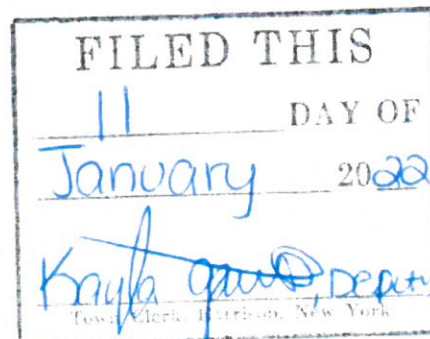 FILED THIS
11 DAY OF
January 2022
Kayla , Deputy
Town Clerk, Harrison, New York